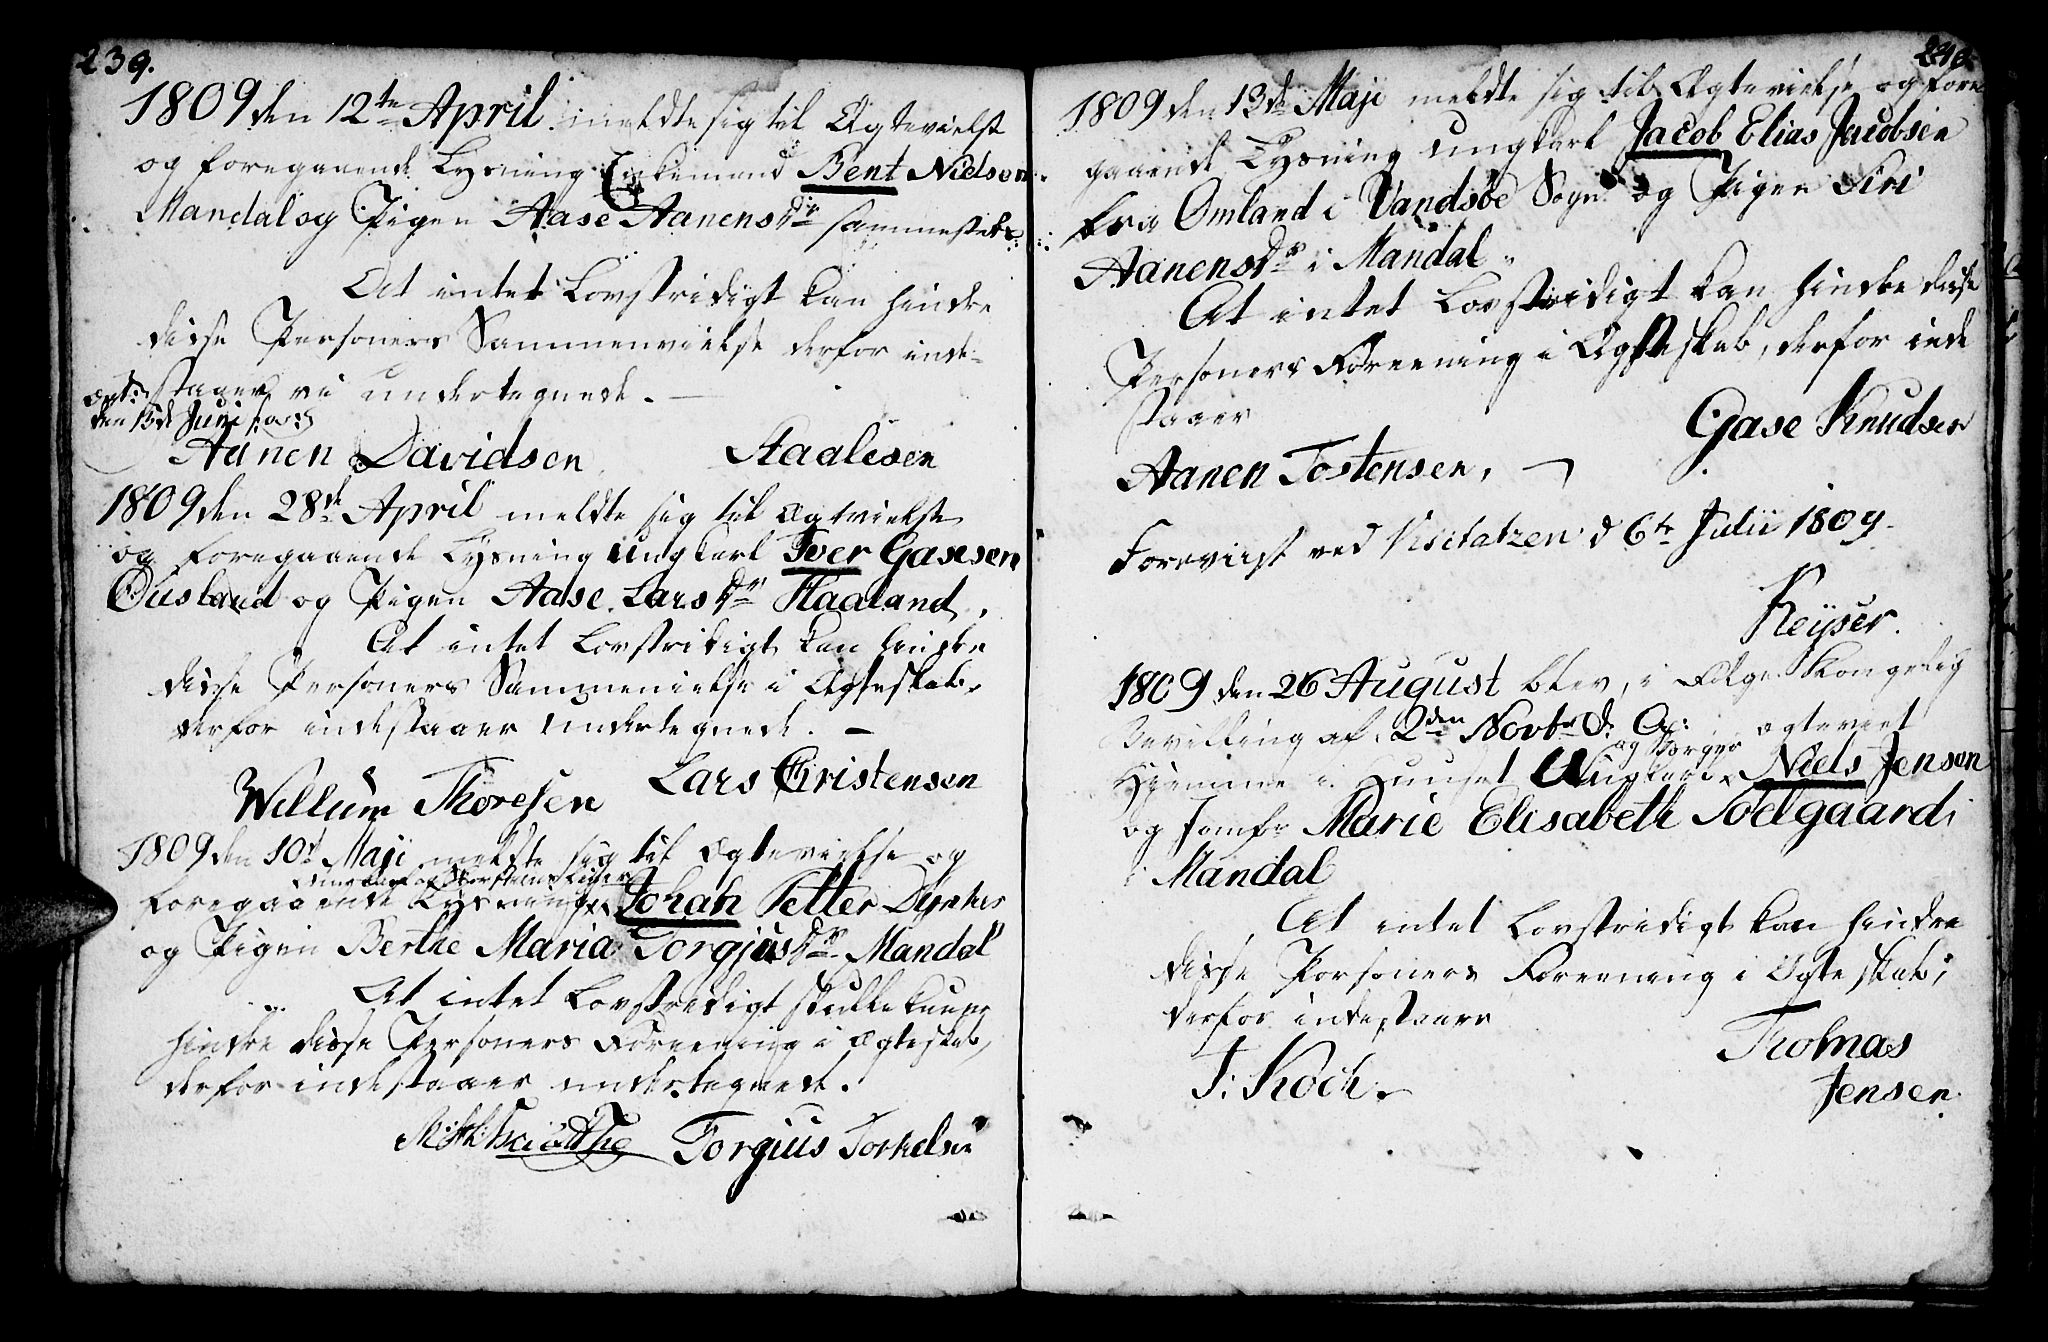 239.
1809 den 12te April meldte sig til Ægtevielse
og foregaaende Lysning Enkemand Bent Nielsen
Mandal og Pigen Aase Aanensdr sammesteds
At intet Lovstridigt kan hindre
disse Personers Sammenvielse derfor inde-
staaer vi undertegnede. —
den 15de Junii
Aanen Davidsen Staalesen
1809 den 28de April meldte sig til Ægtvielse
og foregaaende Lysning ungkarl Iver Gasesen
Øusland og Pigen Aase Larsdr Haaland,
At intet Lovstridigt kan hindre
disse Personers Sammenvielse i Ægteskab,
derfor indestaaer undertegnede. —
Willum Thoresen Lars Christensen
1809 den 10d Maji meldte sig til Ægtevielse og
foregaaende Lysning Johan Petter
og Pigen Berthe Maria Torgjusdr Mandal
At intet Lovstridigt skulle kunne
hindre disse Personers Foreening i Ægteskab,
derfor indestaaer undertegnede.
Torgius Torkelsen
240.
1809 den 13de Maji meldte sig til Ægtevielse og fore
gaaende Lysning ungkarl Jacob Elias Jacobsen
fra Omland i Vandsøe Sogn og Pigen Siri
Aanensdr i Mandal
At intet Lovstridigt kan hindre disse
Personers Foreening i Ægteskab, derfor inde
staaer
Gase Knudsen
Aanen Tostensen.
Foreviist ved Visitatzen d 6te Julii 1809.
Keyser.
1809 den 26 August blev, i Følge Kongelig
Bevilling af 2den Novbr d: A: ægteviet
hjemme i Huuset Ungkarl og Borger Niels Jensen
og Jomfr Marie Elisabeth Toelgaard i
Mandal
At intet Lovstridigt kan hindre
disse Personers Foreening i Ægteskab,
derfor indestaaer
Thomas
J: Koch.
Jensen